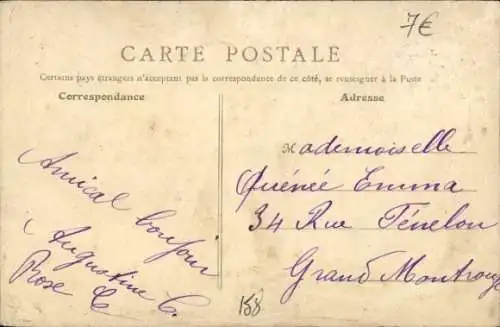 7€
CARTE POSTALE
Certains pays étrangers n'acceptent pas la correspondance de ce côté, se renseigner à la Poste
Correspondance
Adresse
Amical bonjour
Augustine C.
Rose C
Mademoiselle
Quénée Emma
34 Rue Fénelon
Grand Montrouge
158